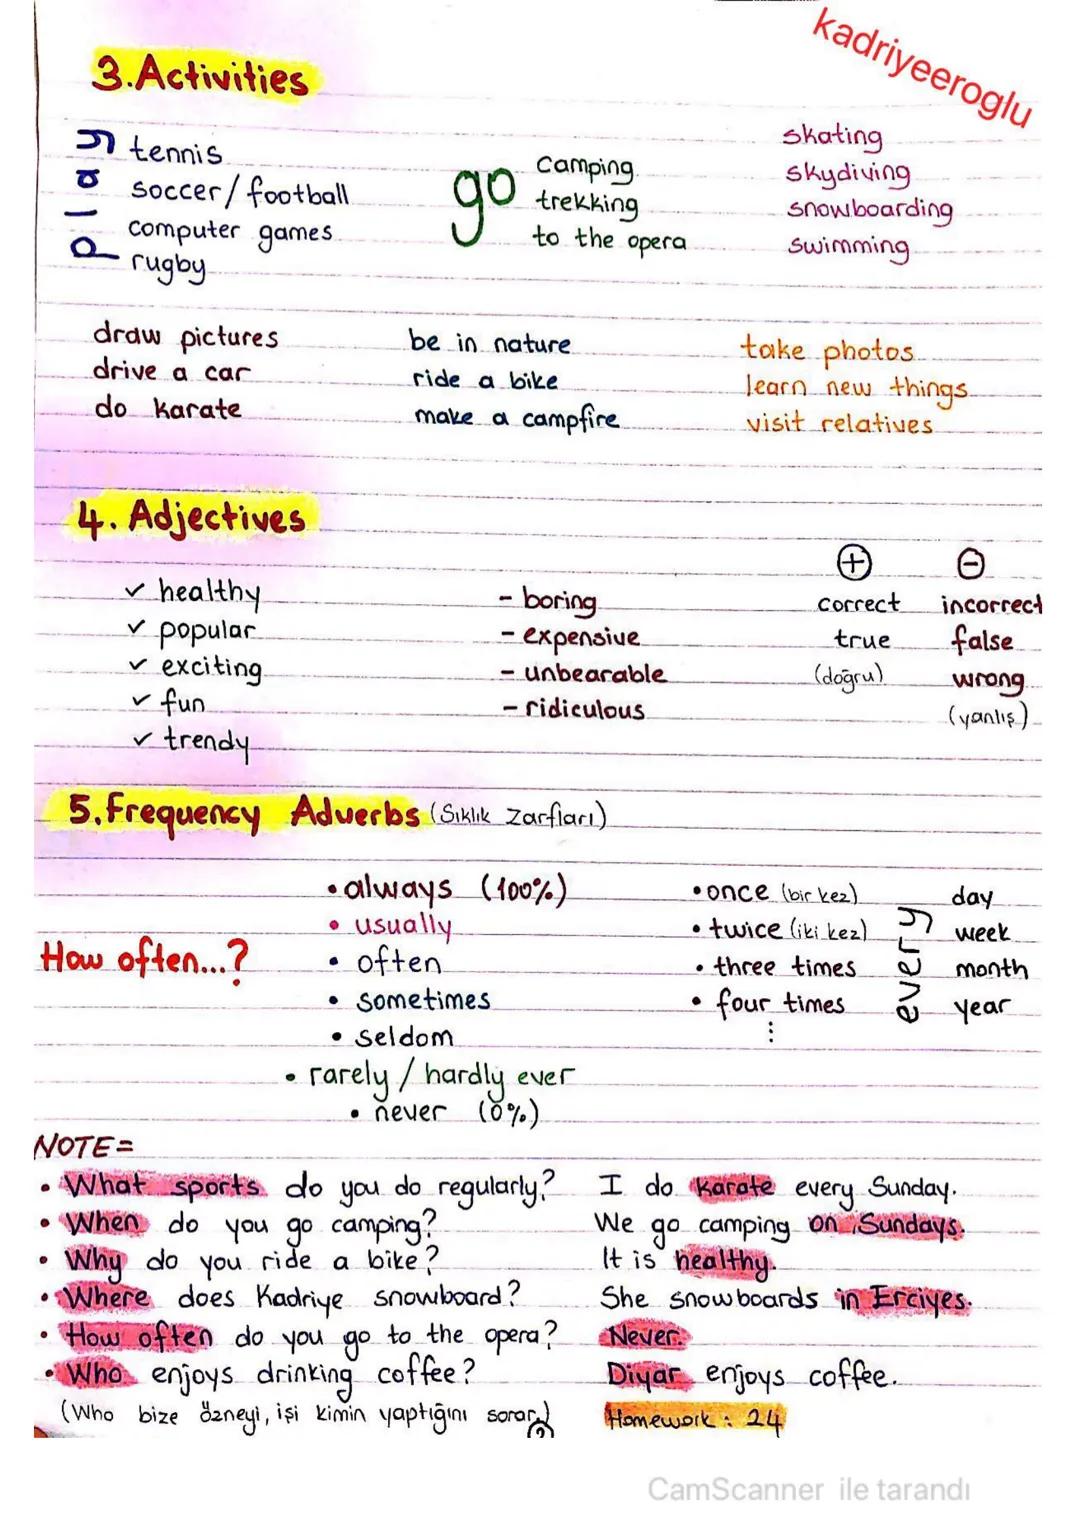 kadriyeeroglu
3.Activities
play
tennis
soccer/football
computer games
rugby
go
camping
trekking
to the opera
skating
skydiving
snowboarding
swimming
draw pictures
drive a car
do karate
be in nature
ride a bike
make a campfire
take photos
learn new things
visit relatives
4. Adjectives
✓ healthy
✓ popular
✓ exciting
✓ fun
✓ trendy
- boring
- expensive
- unbearable
- ridiculous
+
correct
true
(doğru)
-
incorrect
false
wrong
(yanlış)
5.Frequency Adverbs (Sıklık Zarfları)
How often...?
• always (100%)
• usually
• often
• sometimes
• seldom
• rarely / hardly ever
• never (0%)
• once (bir kez)
• twice (iki kez)
• three times
• four times
⋮
every
day
week
month
year
NOTE=
• What sports do you do regularly? I do karate every Sunday.
• When do you go camping? We go camping on Sundays.
• Why do you ride a bike? It is healthy.
• Where does Kadriye snowboard? She snowboards in Erciyes.
• How often do you go to the opera? Never.
• Who enjoys drinking coffee? Diyar enjoys coffee.
(Who bize özneyi, işi kimin yaptığını sorar.) Homework: 24
CamScanner ile tarandı